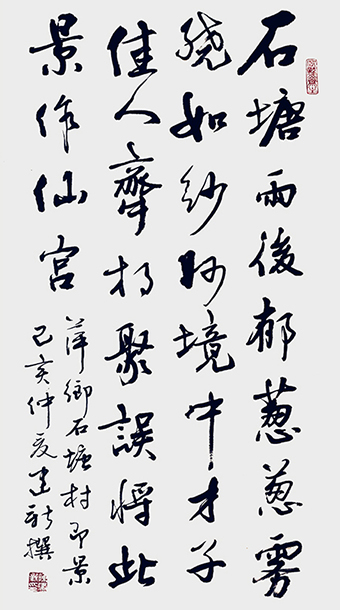 石塘雨後郁蔥蔥雾
繞如紗妙境中才子
佳人齊相聚誤將此
景作仙宫
萍鄉石塘村即景
己亥仲夏建撰